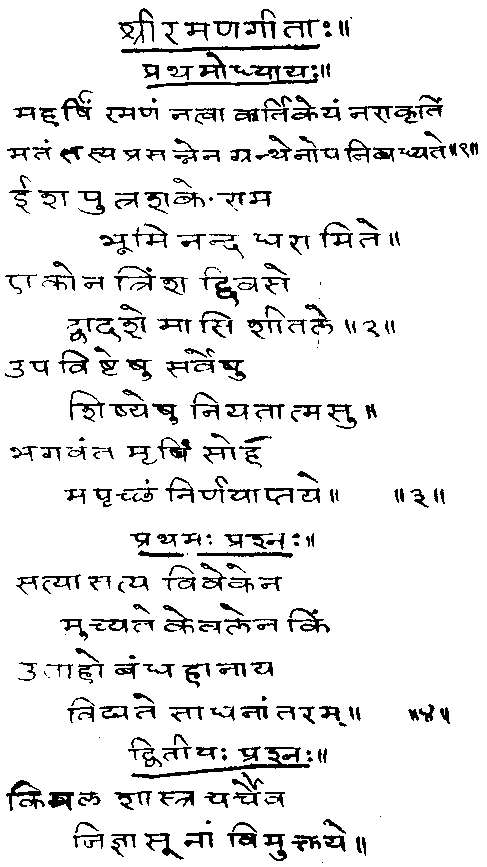 श्रीरमणगीताः॥
प्रथमोध्यायः॥
महर्षिं रमणं नत्वा कार्तिकेयं नराकृतिं
मतं तस्य प्रसन्नेन ग्रन्थेनोपनिबध्यते॥१॥
ईशपुत्रशके राम
भूमि नन्द धरामिते॥
एकोनत्रिंश द्दिवसे
द्वादशे मासि शीतले॥२॥
उपविष्टेषु सर्वेषु
शिष्येषु नियतात्मसु॥
भगवंत मृषिं सोहं
मपृच्छं निर्णयाप्तये॥ ॥३॥
प्रथमः प्रश्नः॥
सत्यासत्य विवेकेन
मुच्यते केवलेन किं
उताहो बंधहानाय
विद्यते साधनांतरम्॥ ॥४॥
द्वितीयः प्रश्नः॥
किमलं शास्त्रचर्चैव
जिज्ञासूनां विमुक्तये॥